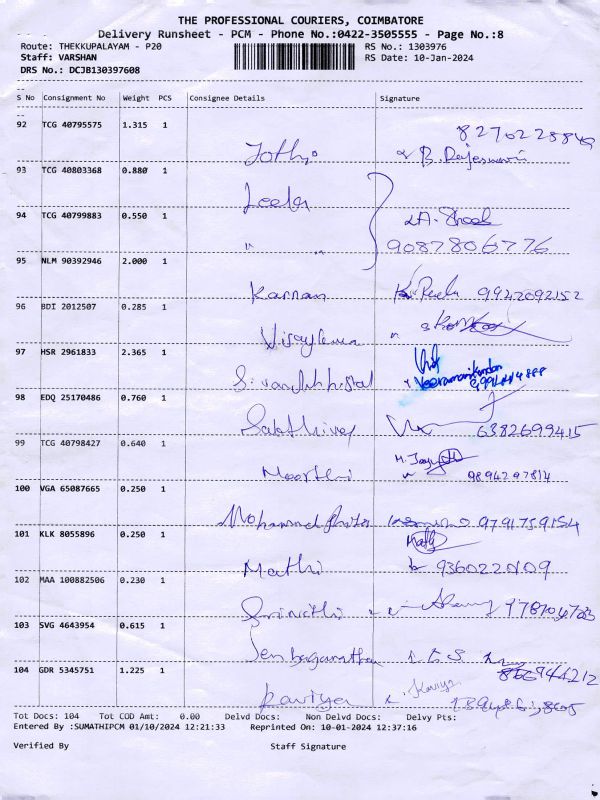 THE PROFESSIONAL COURIERS, COIMBATORE
Delivery Runsheet - PCM - Phone No.:0422-3505555 - Page No.:8
Route: THEKKUPALAYAM - P20 RS No.: 1303976
Staff: VARSHAN RS Date: 10-Jan-2024
DRS No.: DCJB130397608
S No Consignment No Weight PCS Consignee Details Signature
92 TCG 40795575 1.315 1
Jothi B. Rajeswari
93 TCG 40803368 0.880 1
Leela
94 TCG 40799883 0.550 1
" " 9087806776
95 NLM 90392946 2.000 1
Karnan 9942092152
96 BDI 2012507 0.285 1
97 HSR 2961833 2.365 1
98 EDQ 25170486 0.760 1
Sakthivel 6382699415
99 TCG 40798427 0.640 1
Moorthi 9894297814
100 VGA 65087665 0.250 1
Mohammed 9791759154
101 KLK 8055896 0.250 1
Mathi 9360222109
102 MAA 100882506 0.230 1
Srinithi
103 SVG 4643954 0.615 1
104 GDR 5345751 1.225 1
Kaviya Kaviya
Tot Docs: 104 Tot COD Amt: 0.00 Delvd Docs: Non Delvd Docs: Delvy Pts:
Entered By :SUMATHIPCM 01/10/2024 12:21:33 Reprinted On: 10-01-2024 12:37:16
Verified By Staff Signature